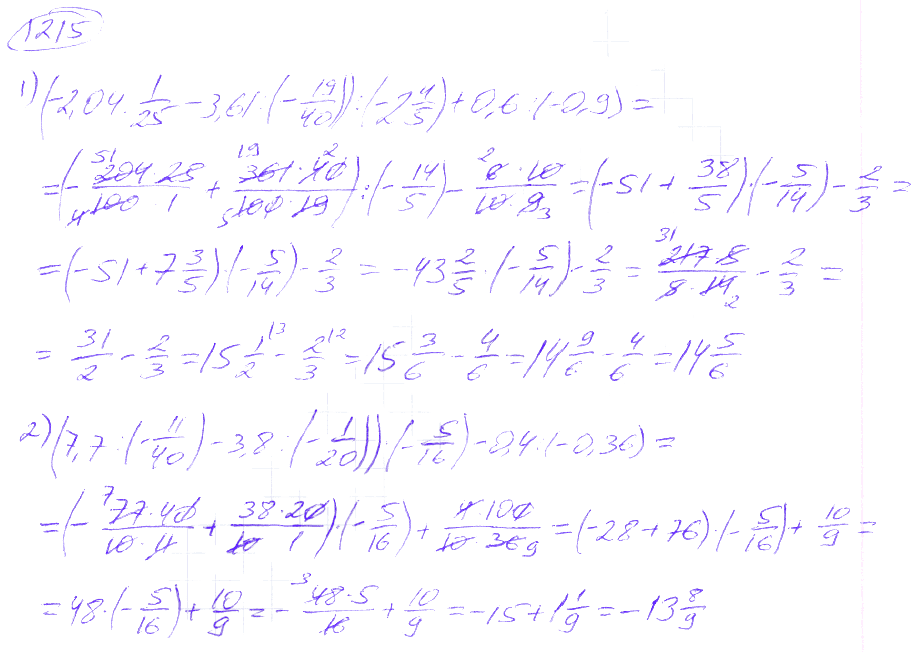 1215
1) (-2,04 : 1/25 - 3,61 : (-19/40)) : (-2 4/5) + 0,6 : (-0,9) =
= (- 204·25/100·1 + 361·40/100·19) : (-14/5) - 6·10/10·9 = (-51 + 38/5)·(-5/14) - 2/3 =
= (-51 + 7 3/5)·(-5/14) - 2/3 = -43 2/5·(-5/14) - 2/3 = 217·5/5·14 - 2/3 =
= 31/2 - 2/3 = 15 1/2 - 2/3 = 15 3/6 - 4/6 = 14 9/6 - 4/6 = 14 5/6
2) (7,7 : (-11/40) - 3,8 : (-1/20))·(-5/16) - 0,4 : (-0,36) =
= (- 77·40/10·11 + 38·20/10·1)·(-5/16) + 4·100/10·36 = (-28 + 76)·(-5/16) + 10/9 =
= 48·(-5/16) + 10/9 = - 48·5/16 + 10/9 = -15 + 1 1/9 = -13 8/9